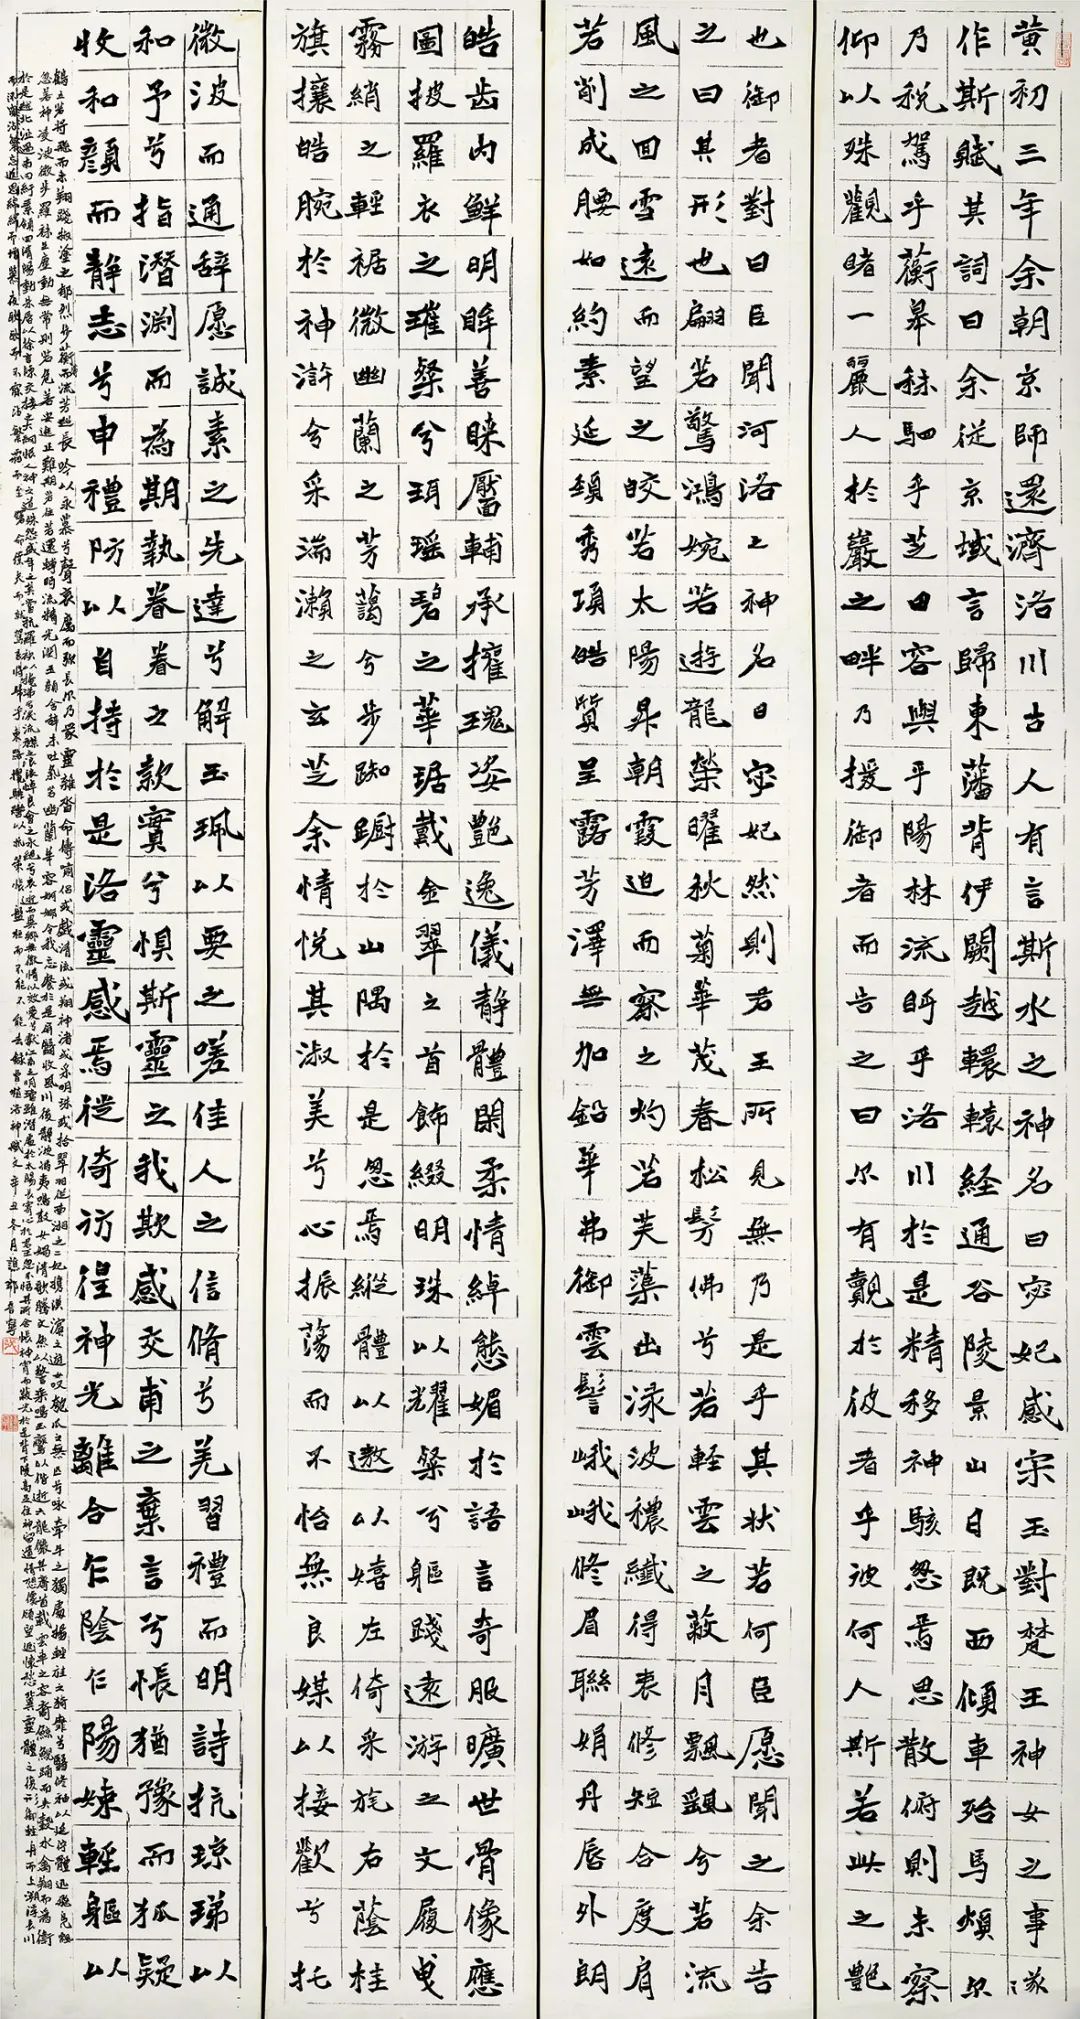 黄初三年余朝京師還濟洛川古人有言斯水之神名曰宓妃感宋玉對楚王神女之事遂
作斯賦其詞曰余從京域言歸東藩背伊闕越轘轅経通谷陵景山日既西傾車殆馬煩尔
乃税駕乎蘅皋秣駟乎芝田容與乎陽林流眄乎洛川於是精移神駭忽焉思散俯則未察
仰以殊觀睹一麗人於巖之畔乃援御者而告之曰尔有覿於彼者乎彼何人斯若此之艷
也御者對曰臣聞河洛之神名曰宓妃然則君王所見無乃是乎其狀若何臣愿聞之余告
之曰其形也翩若驚鴻婉若遊龍榮曜秋菊華茂春松髣佛兮若輕雲之蔽月飄颻兮若流
風之回雪遠而望之皎若太陽昇朝霞迫而察之灼若芙蕖出渌波穠纖得衷修短合度肩
若削成腰如約素延頸秀項皓質呈露芳澤無加鉛華弗御雲髻峨峨修眉聯娟丹唇外朗
皓齒内鮮明眸善睞靨輔承擁瑰姿艷逸儀静體閑柔情綽態媚於語言奇服曠世骨像應
圖披羅衣之璀粲兮珥瑶碧之華琚戴金翠之首飾綴明珠以耀粲兮軀踐遠游之文履曳
霧綃之輕裾微幽蘭之芳藹兮步踟躕於山隅於是忽焉縱體以遨以嬉左倚采旄右蔭桂
旗攘皓腕於神滸兮采湍瀨之玄芝余情悦其淑美兮心振蕩而不怡無良媒以接歡兮托
微波而通辞愿誠素之先達兮解玉珮以要之嗟佳人之信脩兮羌習禮而明詩抗琼珶以
和予兮指潛渊而為期執眷眷之款實兮惧斯靈之我欺感交甫之棄言兮悵猶豫而狐疑
收和顔而静志兮申禮防以自持於是洛靈感焉徙倚彷徨神光離合乍陰乍陽竦輕軀以
鶴立若將飛而未翔踐椒塗之郁烈步蘅薄而流芳超長吟以永慕兮聲哀厲而彌長尔乃衆靈雜沓命儔嘯侣或戲清流或翔神渚或采明珠或拾翠羽從南湘之二妃攜漢濱之遊女嘆匏瓜之無匹兮咏牽牛之獨處揚輕袿之猗靡兮翳修袖以延佇體迅飛凫飄
忽若神凌波微步羅襪生塵動無常則若危若安進止難期若往若還轉眄流精光潤玉顔含辞未吐氣若幽蘭華容婀娜令我忘餐於是屏翳收風川後静波馮夷鳴鼓女媧清歌騰文魚以警乘鳴玉鸞以偕逝六龍儼其齊首載雲車之容裔鯨鯢踊而夾轂水禽翔而為衛
於是越北沚過南岡紆素領回清陽動朱唇以徐言陳交接之大綱恨人神之道殊怨盛年之莫當抗羅袂以掩涕兮淚流襟之浪浪悼良會之永絶兮哀一逝而異鄉無微情以效愛兮獻江南之明璫雖潛處於太陽長寄心於君王忽不悟其所舍悵神宵而蔽光於是背下陵高足往神留遺情想像顧望懷愁冀靈體之復形御輕舟而上溯浮長川
而忘返思綿綿而增慕夜耿耿而不寐沾繁霜而至曙命僕夫而就駕吾將歸乎東路攬騑轡以抗策悵盤桓而不能不能去錄曹植洛神賦文辛丑冬月